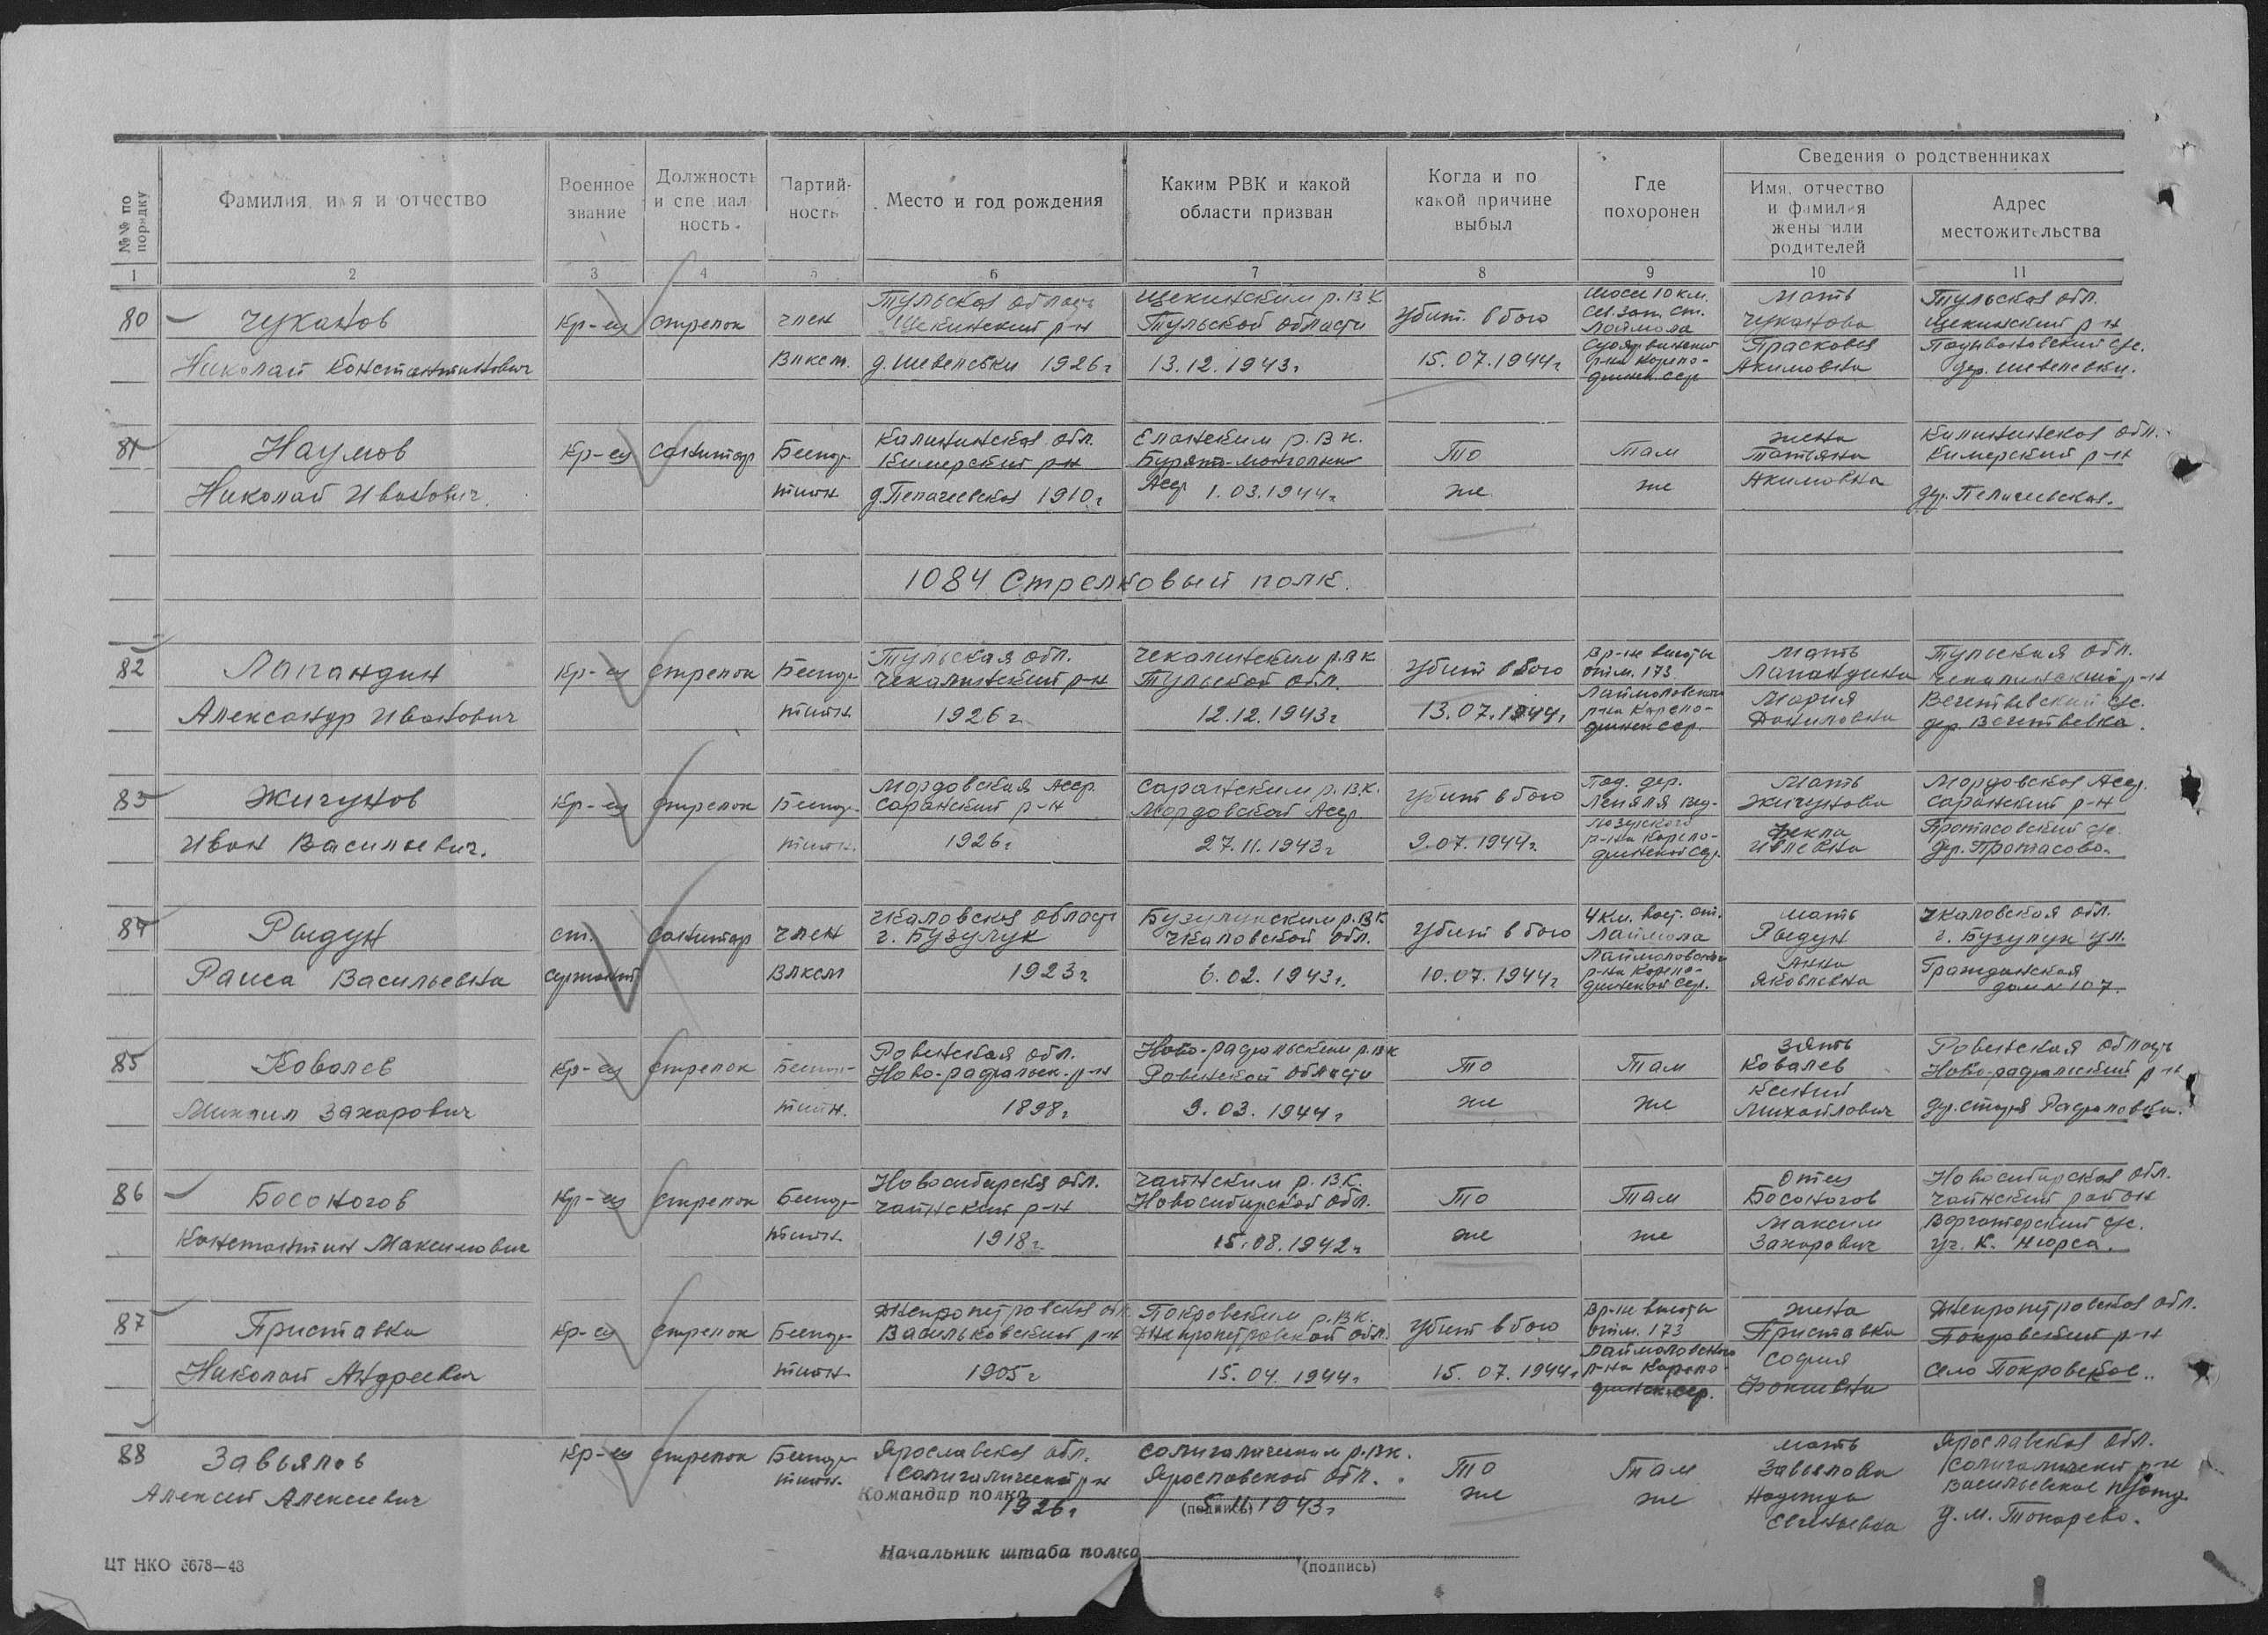 №№ по порядку
Фамилия, имя и отчество
Военное звание
Должность и специальность
Партийность
Место и год рождения
Каким РВК и какой области призван
Когда и по какой причине выбыл
Где похоронен
Сведения о родственниках
Имя, отчество и фамилия жены или родителей
Адрес местожительства
1 2 3 4 5 6 7 8 9 10 11
80 Чуканов Николай Константинович
Кр-ец стрелок член Влксм.
Тульская область Щекинский р-н д. Шевелевки 1926г
Щекинским р.В.К. Тульской области 13.12.1943г
Убит в бою 15.07.1944г
10 км. сев. зап. ст. Лоймола
мать Чуканова Прасковья Акимовна
Тульская обл. Щекинский р-н дер. Шевелевки.
81 Наумов Николай Иванович
Кр-ец санитар Беспартийн
Калининская обл. Кимерский р-н 1910г
Еланским р.В.К. Бурят-Монгольск Асср 1.03.1944г
То же
Там же
жена Татьяна Акимовна
Калининская обл. Кимерский р-н
1084 Стрелковый полк.
82 Лапандин Александр Иванович
Кр-ец стрелок Беспартийн
Тульская обл. Чекалинский р-н 1926г
Чекалинским р.В.К Тульской обл. 12.12.1943г
Убит в бою 13.07.1944г
В р-не высоты отм. 173 Лаймоловского р-на Карело-финск сср.
мать Лапандина Мария Даниловна
Тульская обл. Чекалинский р-н
83 Жигунов Иван Васильевич.
Кр-ец стрелок Беспартийн.
Мордовская Асср Саранский р-н 1926г
Саранским р.В.К. Мордовской Асср 27.11.1943г
Убит в бою 9.07.1944г.
Под. дер.
р-на Карело-финской сср.
мать Жигунова Фекла
Мордовская Асср. Саранский р-н Протасовский с/с. дер. Протасово.
84 Рыдун Раиса Васильевна
ст. сержант санитар член Влксм
Чкаловская область г. Бузулук 1923г
Бузулукским р.В.К Чкаловской обл. 6.02.1943г.
Убит в бою 10.07.1944г
4 км. вост. ст. Лаймола Лаймоловского р-на Карело-финской сср.
мать Рыдун Анна Яковлевна
Чкаловская обл. г. Бузулук ул. Гражданская дом № 107.
85 Ковалев Михаил Захарович
Кр-ец стрелок Беспартийн.
Ровенская обл. 1898г
Ровенской области 9.03.1944г
То же
Там же
зять Ковалев Михайлович
Ровенская область
86 Босоногов Константин Максимович
Кр-ец стрелок Беспартийн.
Новосибирская обл. Чаинский р-н 1918г.
Чаинским р.В.К. Новосибирской обл. 15.08.1942г
То же
Там же
отец Босоногов Максим Захарович
Новосибирская обл. Чаинский район
87 Приставка Николай Андреевич
Кр-ец стрелок Беспартийн.
Днепропетровская обл. Васильковский р-н 1905г
Покровским р.В.К. Днепропетровской обл. 15.04.1944г
Убит в бою 15.07.1944г
В р-не высоты отм. 173 Лаймоловского р-на Карело-финск. сср.
жена Приставка София Фокиевна
Днепропетровская обл. Покровский р-н село Покровское.
88 Завьялов Алексей Алексеевич
Кр-ец стрелок Беспартийн.
Ярославская обл. Солигаличский р-н 1926г
Солигаличским р.В.К. Ярославской обл. 5.11.1943г
То же
Там же
мать Завьялова Надежда Евгеньевна
Ярославская обл. Солигаличский р-н д. М. Токарево.
Командир полка
(подпись)
Начальник штаба полка
(подпись)
ЦТ НКО 6678—43